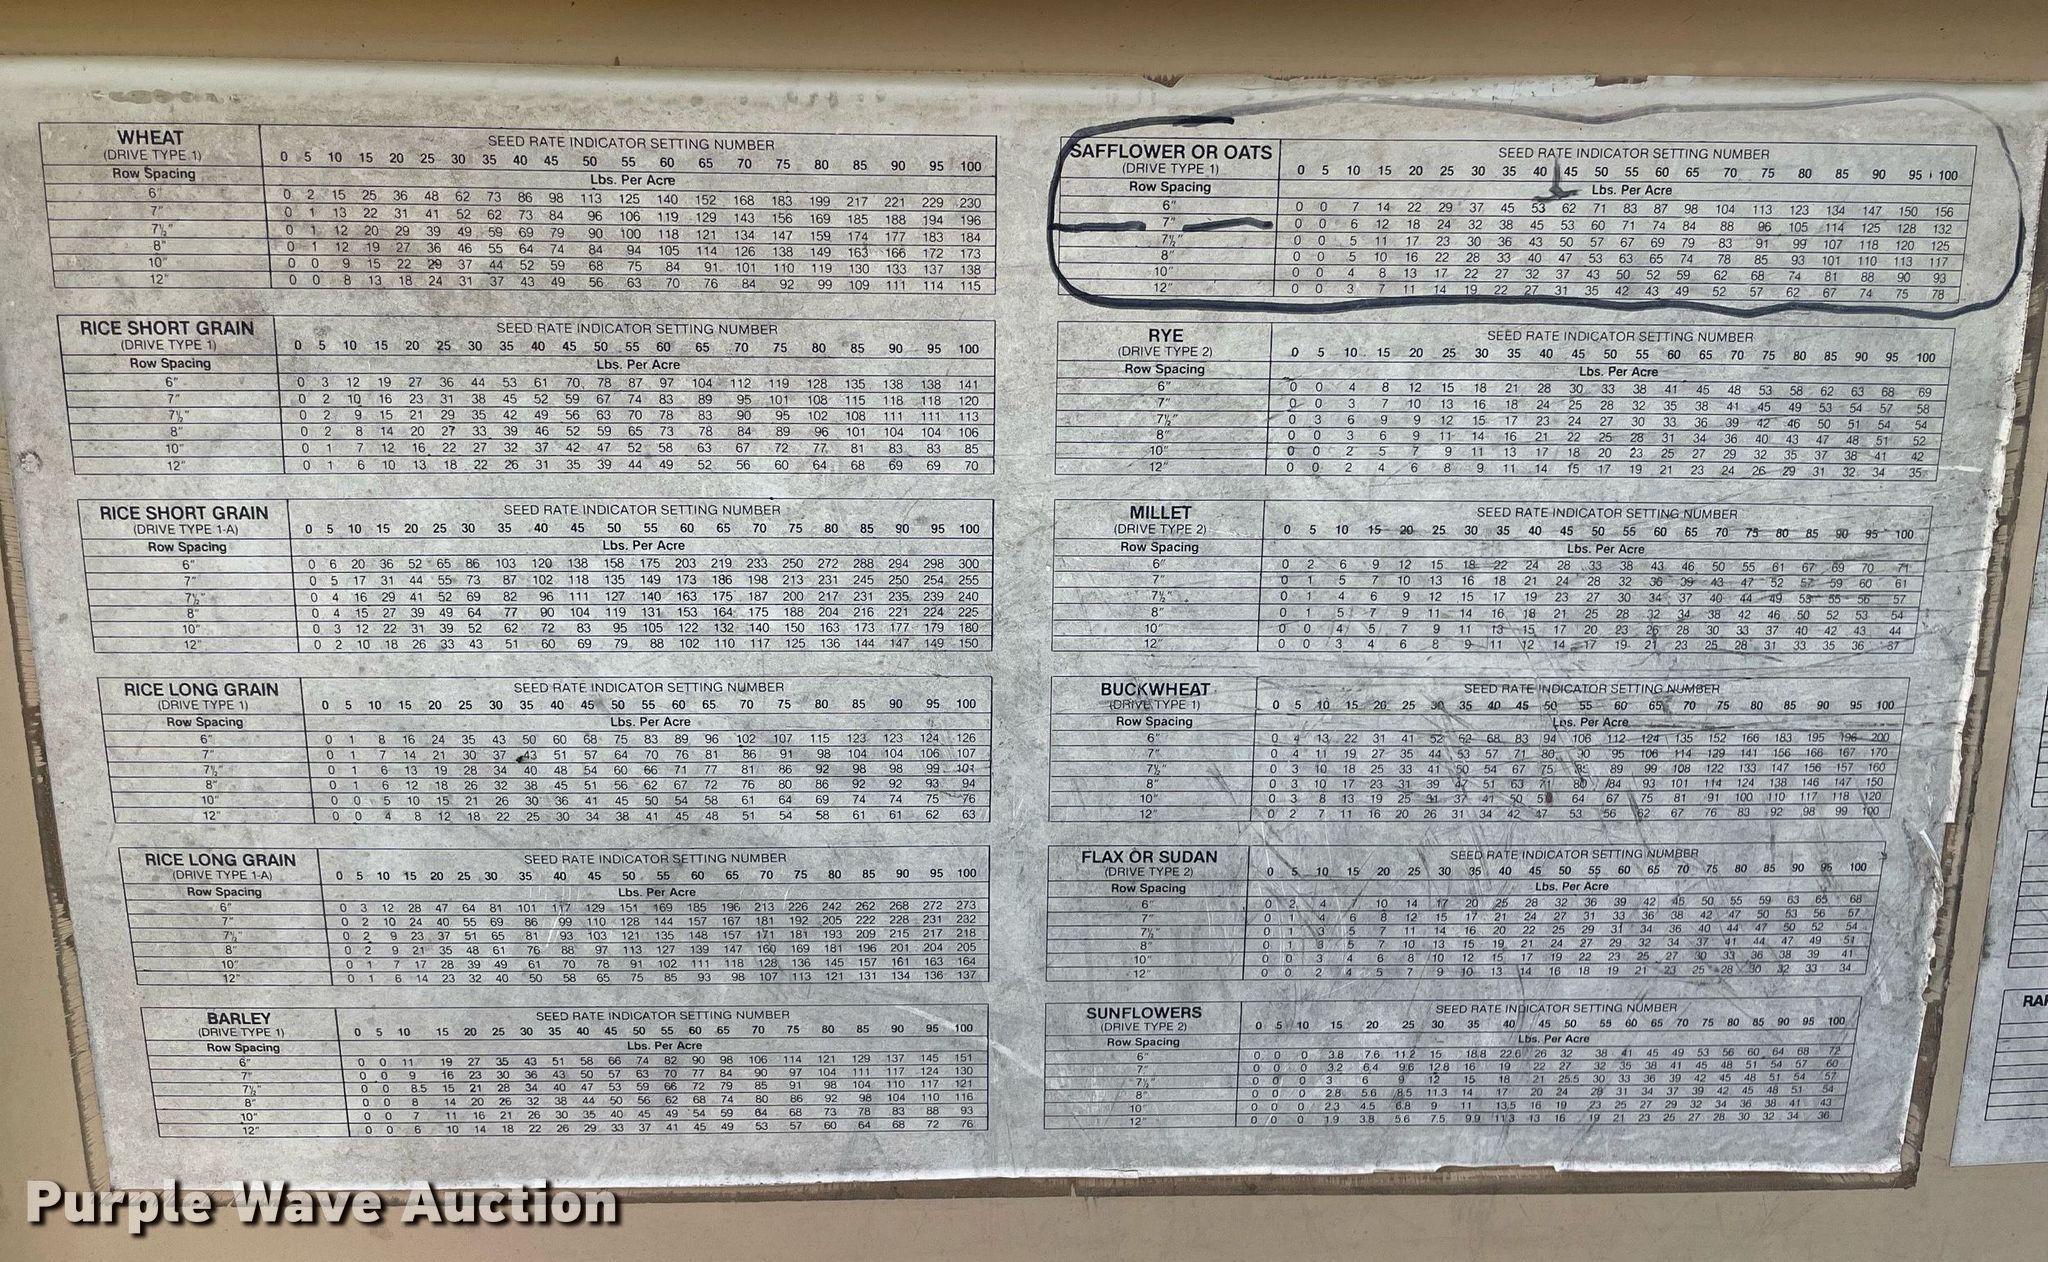 WHEAT
(DRIVE TYPE 1)
SEED RATE INDICATOR SETTING NUMBER
0 5 10 15 20 25 30 35 40 45 50 55 60 65 70 75 80 85 90 95 100
Row Spacing
Lbs. Per Acre
6" 0 2 15 25 36 48 62 73 86 98 113 125 140 152 168 183 199 217 221 229 230
7" 0 1 13 22 31 41 52 62 73 84 96 106 119 129 143 156 169 185 188 194 196
7½" 0 1 12 20 29 39 49 59 69 79 90 100 118 121 134 147 159 174 177 183 184
8" 0 1 12 19 27 36 46 55 64 74 84 94 105 114 126 138 149 163 166 172 173
10" 0 0 9 15 22 29 37 44 52 59 68 75 84 91 101 110 119 130 133 137 138
12" 0 0 8 13 18 24 31 37 43 49 56 63 70 76 84 92 99 109 111 114 115
RICE SHORT GRAIN
(DRIVE TYPE 1)
SEED RATE INDICATOR SETTING NUMBER
0 5 10 15 20 25 30 35 40 45 50 55 60 65 70 75 80 85 90 95 100
Row Spacing
Lbs. Per Acre
6" 0 3 12 19 27 36 44 53 61 70 78 87 97 104 112 119 128 135 138 138 141
7" 0 2 10 16 23 31 38 45 52 59 67 74 83 89 95 101 108 115 118 118 120
7½" 0 2 9 15 21 29 35 42 49 56 63 70 78 83 90 95 102 108 111 111 113
8" 0 2 8 14 20 27 33 39 46 52 59 65 73 78 84 89 96 101 104 104 106
10" 0 1 7 12 16 22 27 32 37 42 47 52 58 63 67 72 77 81 83 83 85
12" 0 1 6 10 13 18 22 26 31 35 39 44 49 52 56 60 64 68 69 69 70
RICE SHORT GRAIN
(DRIVE TYPE 1-A)
SEED RATE INDICATOR SETTING NUMBER
0 5 10 15 20 25 30 35 40 45 50 55 60 65 70 75 80 85 90 95 100
Row Spacing
Lbs. Per Acre
6" 0 6 20 36 52 65 86 103 120 138 158 175 203 219 233 250 272 288 294 298 300
7" 0 5 17 31 44 55 73 87 102 118 135 149 173 186 198 213 231 245 250 254 255
7½" 0 4 16 29 41 52 69 82 96 111 127 140 163 175 187 200 217 231 235 239 240
8" 0 4 15 27 39 49 64 77 90 104 119 131 153 164 175 188 204 216 221 224 225
10" 0 3 12 22 31 39 52 62 72 83 95 105 122 132 140 150 163 173 177 179 180
12" 0 2 10 18 26 33 43 51 60 69 79 88 102 110 117 125 136 144 147 149 150
RICE LONG GRAIN
(DRIVE TYPE 1)
SEED RATE INDICATOR SETTING NUMBER
0 5 10 15 20 25 30 35 40 45 50 55 60 65 70 75 80 85 90 95 100
Row Spacing
Lbs. Per Acre
6" 0 1 8 16 24 35 43 50 60 68 75 83 89 96 102 107 115 123 123 124 126
7" 0 1 7 14 21 30 37 43 51 57 64 70 76 81 86 91 98 104 104 106 107
7½" 0 1 6 13 19 28 34 40 48 54 60 66 71 77 81 86 92 98 98 99 101
8" 0 1 6 12 18 26 32 38 45 51 56 62 67 72 76 80 86 92 92 93 94
10" 0 0 5 10 15 21 26 30 36 41 45 50 54 58 61 64 69 74 74 75 76
12" 0 0 4 8 12 18 22 25 30 34 38 41 45 48 51 54 58 61 61 62 63
RICE LONG GRAIN
(DRIVE TYPE 1-A)
SEED RATE INDICATOR SETTING NUMBER
0 5 10 15 20 25 30 35 40 45 50 55 60 65 70 75 80 85 90 95 100
Row Spacing
Lbs. Per Acre
6" 0 3 12 28 47 64 81 101 117 129 151 169 185 196 213 226 242 262 268 272 273
7" 0 2 10 24 40 55 69 86 99 110 128 144 157 167 181 192 205 222 228 231 232
7½" 0 2 9 23 37 51 65 81 93 103 121 135 148 157 171 181 193 209 215 217 218
8" 0 2 9 21 35 48 61 76 88 97 113 127 139 147 160 169 181 196 201 204 205
10" 0 1 7 17 28 39 49 61 70 78 91 102 111 118 128 136 145 157 161 163 164
12" 0 1 6 14 23 32 40 50 58 65 75 85 93 98 107 113 121 131 134 136 137
BARLEY
(DRIVE TYPE 1)
SEED RATE INDICATOR SETTING NUMBER
0 5 10 15 20 25 30 35 40 45 50 55 60 65 70 75 80 85 90 95 100
Row Spacing
Lbs. Per Acre
6" 0 0 11 19 27 35 43 51 58 66 74 82 90 98 106 114 121 129 137 145 151
7" 0 0 9 16 23 30 36 43 50 57 63 70 77 84 90 97 104 111 117 124 130
7½" 0 0 8.5 15 21 28 34 40 47 53 59 66 72 79 85 91 98 104 110 117 121
8" 0 0 8 14 20 26 32 38 44 50 56 62 68 74 80 86 92 98 104 110 116
10" 0 0 7 11 16 21 26 30 35 40 45 49 54 59 64 68 73 78 83 88 93
12" 0 0 6 10 14 18 22 26 29 33 37 41 45 49 53 57 60 64 68 72 76
SAFFLOWER OR OATS
(DRIVE TYPE 1)
SEED RATE INDICATOR SETTING NUMBER
0 5 10 15 20 25 30 35 40 45 50 55 60 65 70 75 80 85 90 95 100
Row Spacing
Lbs. Per Acre
6" 0 0 7 14 22 29 37 45 53 62 71 83 87 98 104 113 123 134 147 150 156
7" 0 0 6 12 18 24 32 38 45 53 60 71 74 84 88 96 105 114 125 128 132
7½" 0 0 5 11 17 23 30 36 43 50 57 67 69 79 83 91 99 107 118 120 125
8" 0 0 5 10 16 22 28 33 40 47 53 63 65 74 78 85 93 101 110 113 117
10" 0 0 4 8 13 17 22 27 32 37 43 50 52 59 62 68 74 81 88 90 93
12" 0 0 3 7 11 14 19 22 27 31 35 42 43 49 52 57 62 67 74 75 78
RYE
(DRIVE TYPE 2)
SEED RATE INDICATOR SETTING NUMBER
0 5 10 15 20 25 30 35 40 45 50 55 60 65 70 75 80 85 90 95 100
Row Spacing
Lbs. Per Acre
6" 0 0 4 8 12 15 18 21 28 30 33 38 41 45 48 53 58 62 63 68 69
7" 0 0 3 7 10 13 16 18 24 25 28 32 35 38 41 45 49 53 54 57 58
7½" 0 3 6 9 9 12 15 17 23 24 27 30 33 36 39 42 46 50 51 54 54
8" 0 0 3 6 9 11 14 16 21 22 25 28 31 34 36 40 43 47 48 51 52
10" 0 0 2 5 7 9 11 13 17 18 20 23 25 27 29 32 35 37 38 41 42
12" 0 0 2 4 6 8 9 11 14 15 17 19 21 23 24 26 29 31 32 34 35
MILLET
(DRIVE TYPE 2)
SEED RATE INDICATOR SETTING NUMBER
0 5 10 15 20 25 30 35 40 45 50 55 60 65 70 75 80 85 90 95 100
Row Spacing
Lbs. Per Acre
6" 0 2 6 9 12 15 18 22 24 28 33 38 43 46 50 55 61 67 69 70 71
7" 0 1 5 7 10 13 16 18 21 24 28 32 36 39 43 47 52 57 59 60 61
7½" 0 1 4 6 9 12 15 17 19 23 27 30 34 37 40 44 49 53 55 56 57
8" 0 1 5 7 9 11 14 16 18 21 25 28 32 34 38 42 46 50 52 53 54
10" 0 0 4 5 7 9 11 13 15 17 20 23 26 28 30 33 37 40 42 43 44
12" 0 0 3 4 6 8 9 11 12 14 17 19 21 23 25 28 31 33 35 36 37
BUCKWHEAT
(DRIVE TYPE 1)
SEED RATE INDICATOR SETTING NUMBER
0 5 10 15 20 25 30 35 40 45 50 55 60 65 70 75 80 85 90 95 100
Row Spacing
Lbs. Per Acre
6" 0 4 13 22 31 41 52 62 68 83 94 106 112 124 135 152 166 183 195 196 200
7" 0 4 11 19 27 35 44 53 57 71 80 90 95 106 114 129 141 156 166 167 170
7½" 0 3 10 18 25 33 41 50 54 67 75 85 89 99 108 122 133 147 156 157 160
8" 0 3 10 17 23 31 39 47 51 63 71 80 84 93 101 114 124 138 146 147 150
10" 0 3 8 13 19 25 31 37 41 50 64 67 75 81 91 100 110 117 118 120
12" 0 2 7 11 16 20 26 31 34 42 47 53 56 62 67 76 83 92 98 99 100
FLAX OR SUDAN
(DRIVE TYPE 2)
SEED RATE INDICATOR SETTING NUMBER
0 5 10 15 20 25 30 35 40 45 50 55 60 65 70 75 80 85 90 95 100
Row Spacing
Lbs. Per Acre
6" 0 2 4 7 10 14 17 20 25 28 32 36 39 42 45 50 55 59 63 65 68
7" 0 1 4 6 8 12 15 17 21 24 27 31 33 36 38 42 47 50 53 56 57
7½" 0 1 3 5 7 11 14 16 20 22 25 29 31 34 36 40 44 47 50 52 54
8" 0 1 3 5 7 10 13 15 19 21 24 27 29 32 34 37 41 44 47 49 51
10" 0 0 3 4 6 8 10 12 15 17 19 22 23 25 27 30 33 36 38 39 41
12" 0 0 2 4 5 7 9 10 13 14 16 18 19 21 23 25 28 30 32 33 34
SUNFLOWERS
(DRIVE TYPE 2)
SEED RATE INDICATOR SETTING NUMBER
0 5 10 15 20 25 30 35 40 45 50 55 60 65 70 75 80 85 90 95 100
Row Spacing
Lbs. Per Acre
6" 0 0 0 3.8 7.6 11.2 15 18.8 22.6 26 32 38 41 45 49 53 56 60 64 68 72
7" 0 0 0 3.2 6.4 9.6 12.8 16 19 22 27 32 35 38 41 45 48 51 54 57 60
7½" 0 0 0 3 6 9 12 15 18 21 25.5 30 33 36 39 42 45 48 51 54 57
8" 0 0 0 2.8 5.6 8.5 11.3 14 17 20 24 28 31 34 37 39 42 45 48 51 54
10" 0 0 0 2.3 4.5 6.8 9 11 13.5 16 19 23 25 27 29 32 34 36 38 41 43
12" 0 0 0 1.9 3.8 5.6 7.5 9.9 11.3 13 16 19 21 23 25 27 28 30 32 34 36
Purple Wave Auction